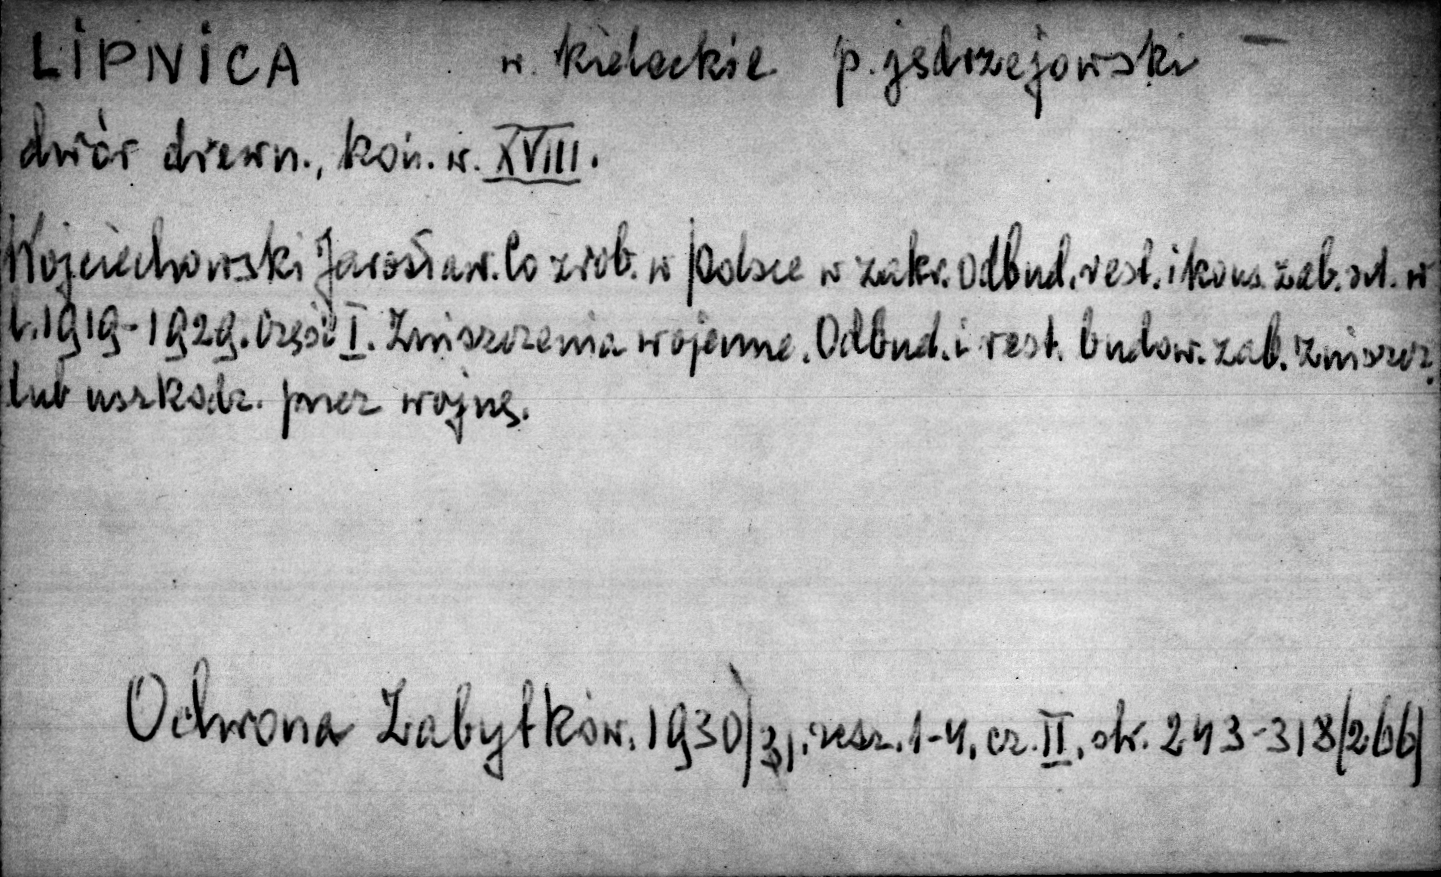 LIPNICA w. kieleckie p. jędrzejowski
dwór drewn., koń. w. XVIII.
Wojciechowski Jarosław. Co zrob. w Polsce w zakr. odbud. rest. i kons. zab. szt. w
l. 1919-1929. Część I. Zniszczenia wojenne. Odbud. i rest. budow. zab. zniszcz.
lub uszkodz. przez wojnę.
Ochrona Zabytków. 1930/31. zesz. 1-4. cz. II. str. 243-318/266/